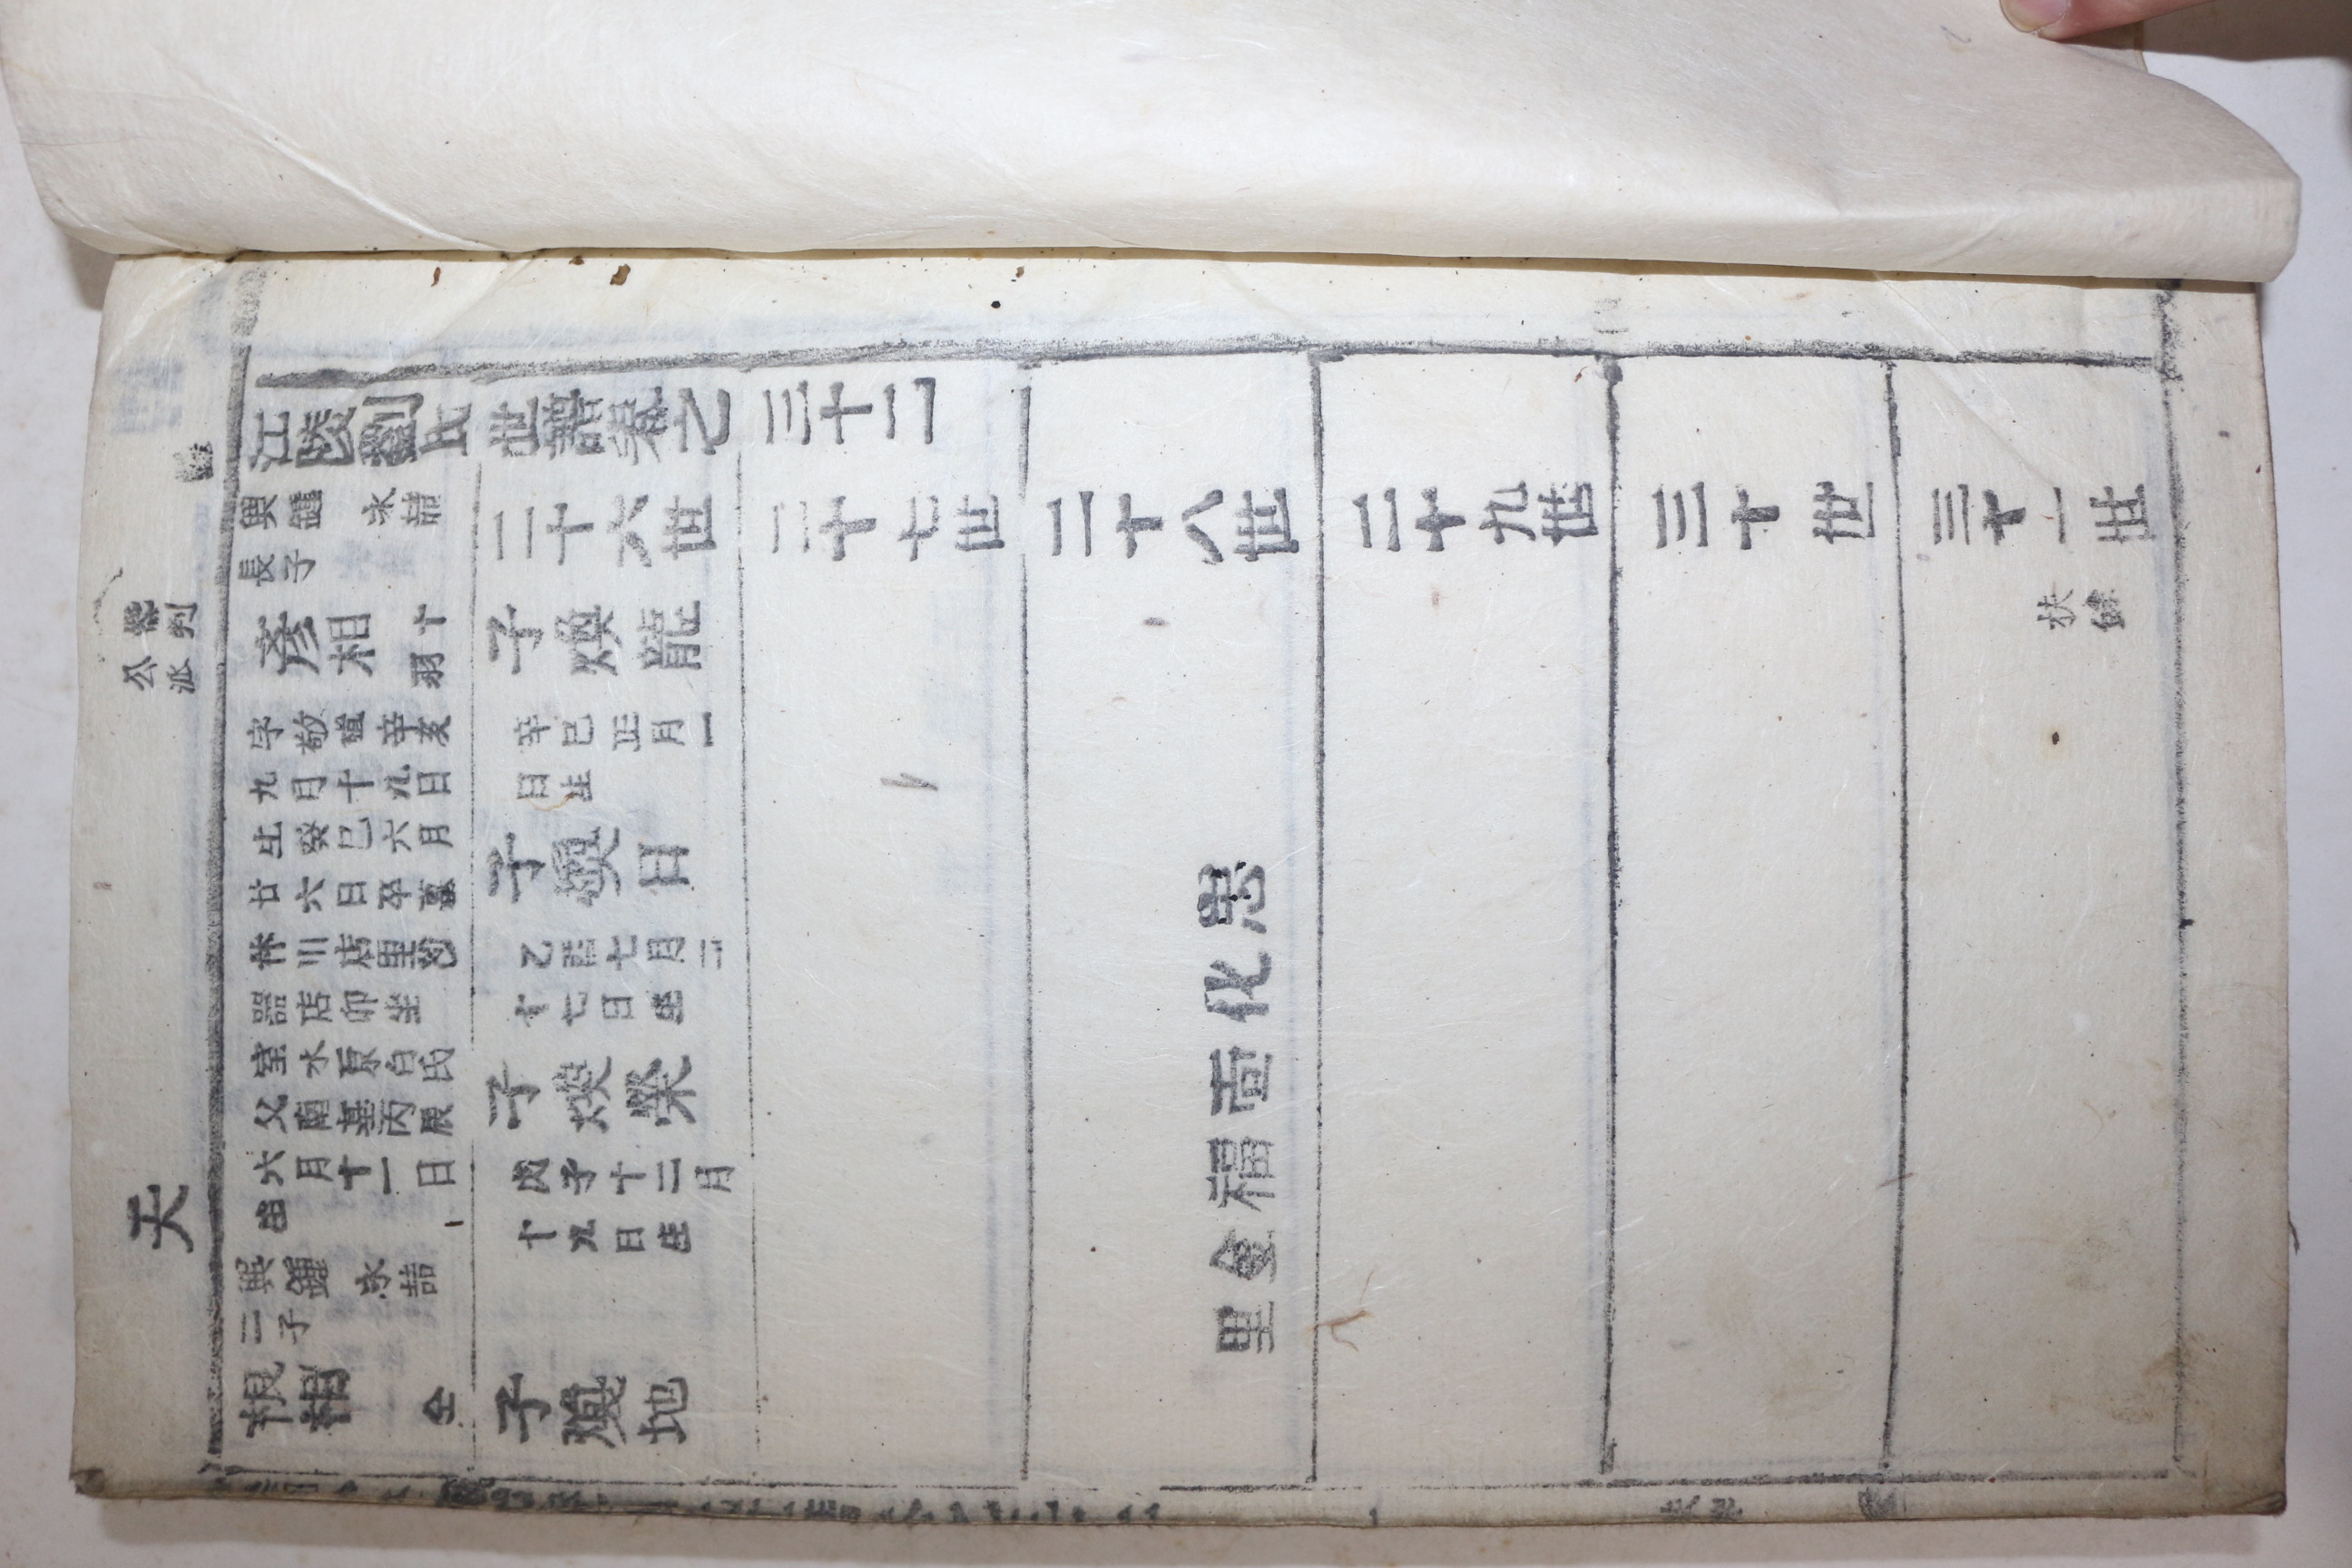 天
參判
公派
江陵劉氏世譜卷之三十二
興鍾 永喆
長子
彥相 十羽
字敬道辛亥
九月十九日
生癸巳六月
廿六日卒墓
林川店里沙
器店卯坐
室水原白氏
父南基丙辰
六月十一日
生
興鍾 永喆
二子
根相 仝
二十六世
子煥龍
辛巳正月一
日生
子煥日
乙酉七月二
十七日生
子煥榮
戊子十二月
十九日生
子煥地
二十七世
二十八世
忠化壹福金里
二十九世
三十世
三十一世
扶餘